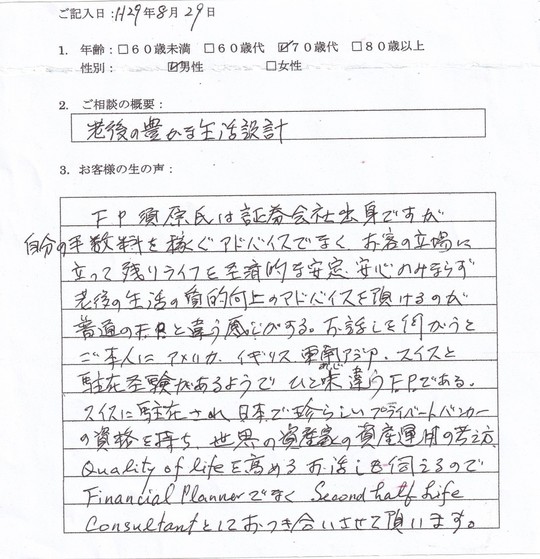 ご記入日：H29年8月29日
1. 年齢：□60歳未満 □60歳代 ☑70歳代 □80歳以上
性別： ☑男性 □女性
2. ご相談の概要：
老後の豊かな生活設計
3. お客様の生の声：
FP須原氏は証券会社出身ですが
自分の手数料を稼ぐアドバイスでなく、お客の立場に
立って残りライフを経済的な安定、安心のみならず
老後の生活の質的向上のアドバイスを頂けるのが
普通のFPと違う感じがする。お話しを伺がうと
ご本人にアメリカ、イギリス、東南アジア、スイスと
駐在経験があるようでひと味違うFPである。
スイスに駐在され、日本で珍らしいプライベートバンカー
の資格を持ち、世界の資産家の資産運用の考え方、
Quality of lifeを高めるお話しも伺えるので
Financial Plannerでなく Second half Life
Consultantとしておつき合いさせて頂います。